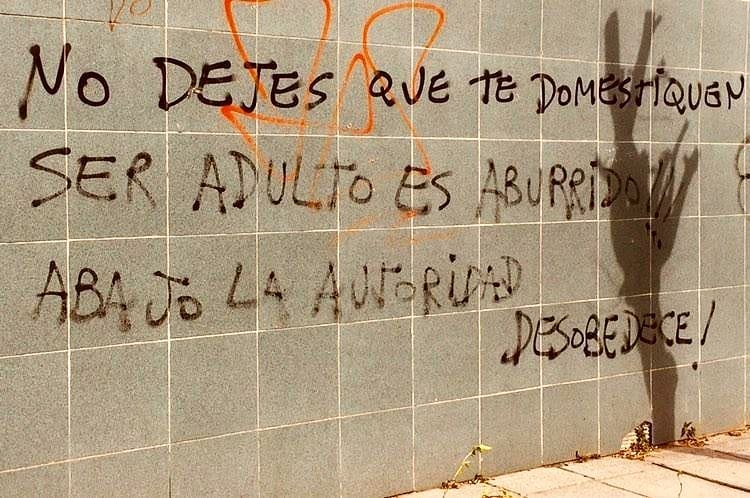 NO DEJES QUE TE DOMESTIQUEN
SER ADULTO ES ABURRIDO!!!
ABAJO LA AUTORIDAD
DESOBEDECE!